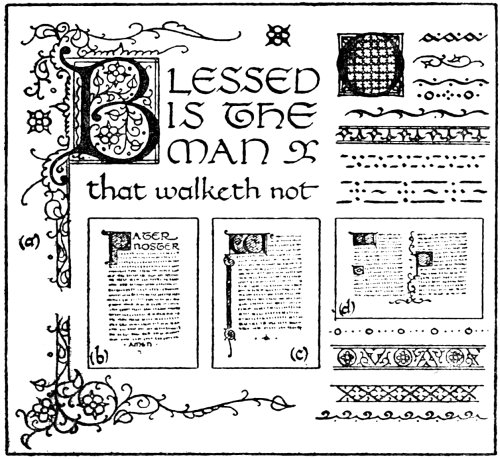 BLESSED
IS THE
MAN
that walketh not
(a)
PATER
NOSTER
AMEN
(b)
(c)
(d)